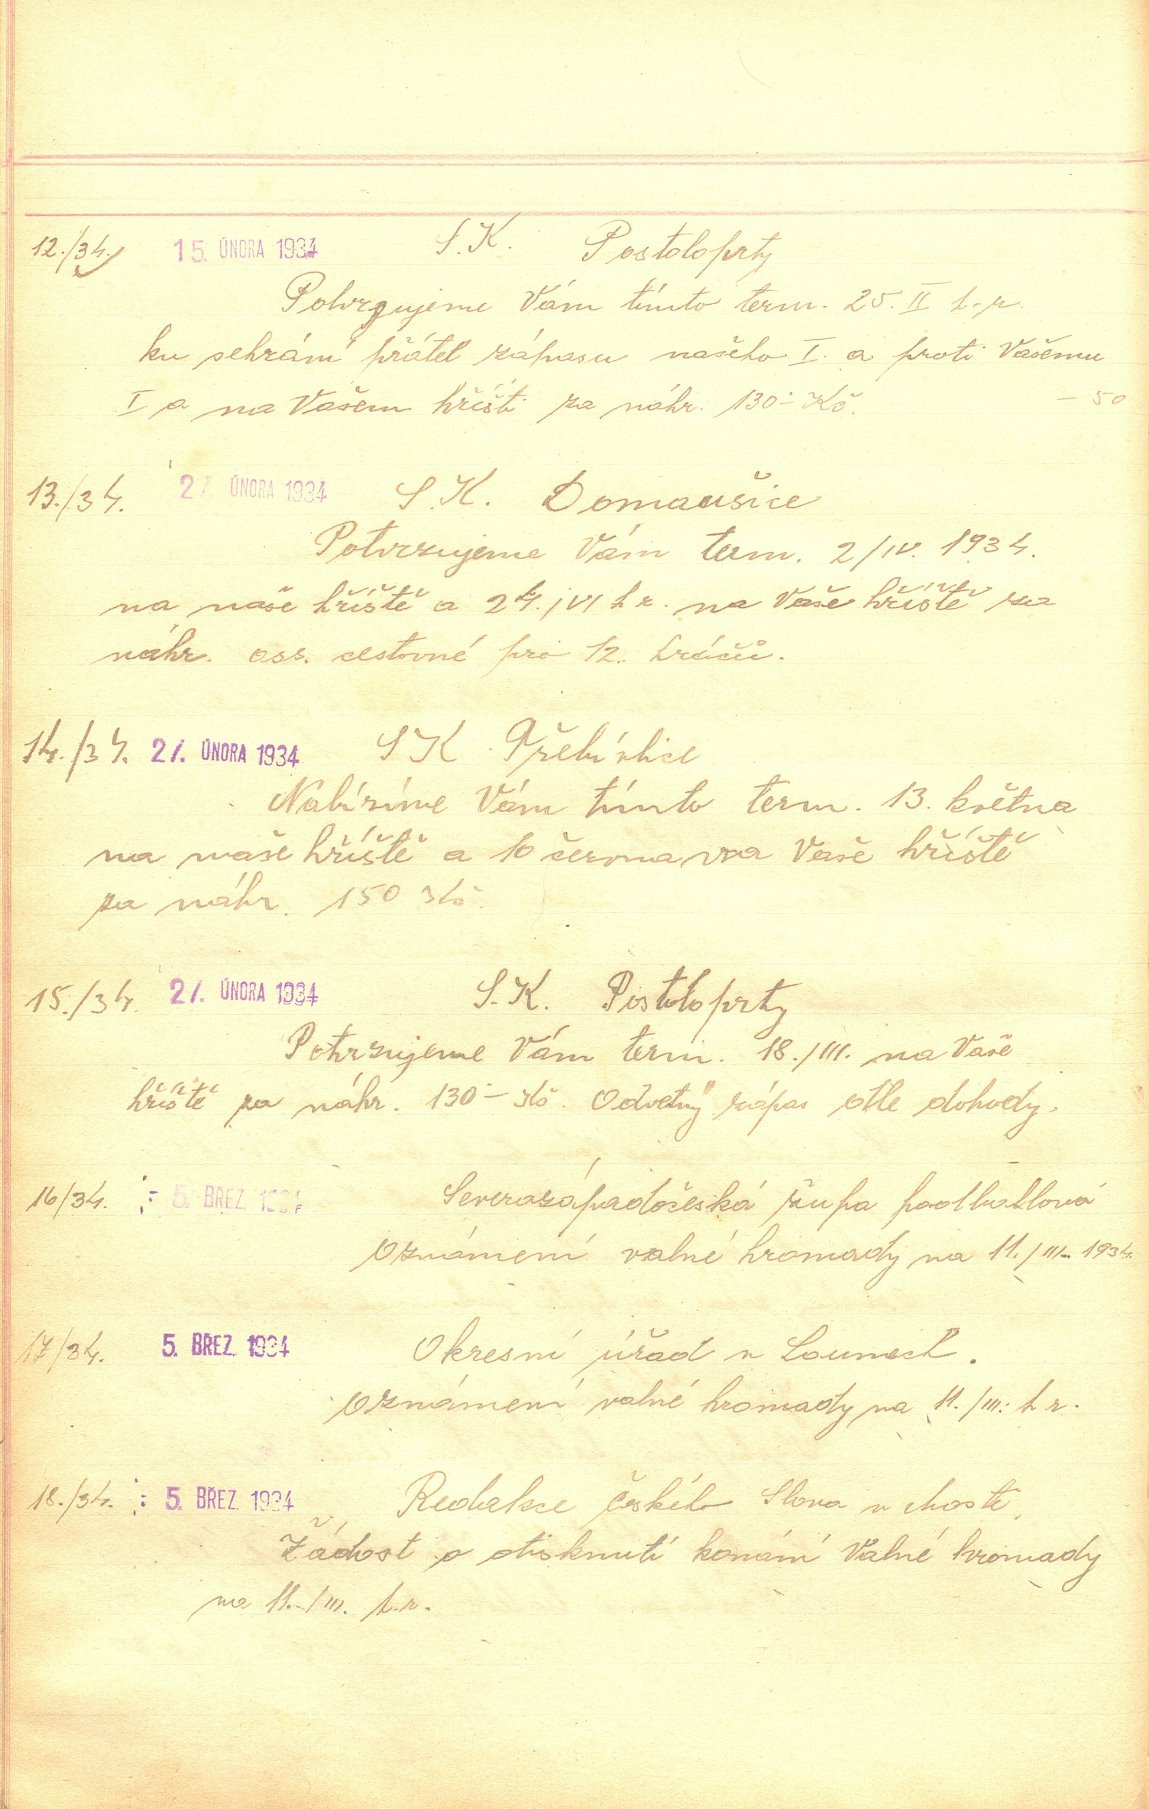 12./34. 15. ÚNORA 1934 S.K. Postoloprty
Potvrzujeme Vám tímto term. 25. II t.r.
ku sehrání přátel zápasu našeho I. a proti Vašemu
I a na Vašem hřišti za náhr. 130·- Kč. - 50
13./34. 27. ÚNORA 1934 S.K. Domaušice
Potvrzujeme Vám term. 2/IV. 1934.
na naše hřiště a 24./VI t r. na Vaše hřiště za
náhr. oss. cestovné pro 12. hráčů.
14./34. 27. ÚNORA 1934 SK Třebívlice
Nabízíme Vám tímto term. 13. května
na naše hřiště a 10 června na Vaše hřiště
za náhr. 150 Kč.
15./34. 27. ÚNORA 1934 S.K. Postoloprty
Potvrzujeme Vám term. 18./III. na Vaše
hřiště za náhr. 130·- Kč. Odvetný zápas dle dohody.
16/34. 5. BŘEZ. 1934 Severozápadočeská župa footballová
Oznámení valné hromady na 11./III. 1934.
17/34. 5. BŘEZ. 1934 Okresní úřad v Lounech.
Oznámení valné hromady na 11./III. t r.
18./34. 5. BŘEZ. 1934 Redakce českého Slova v Mostě,
Žádost o otisknutí konání Valné hromady
na 11./III. t.r.